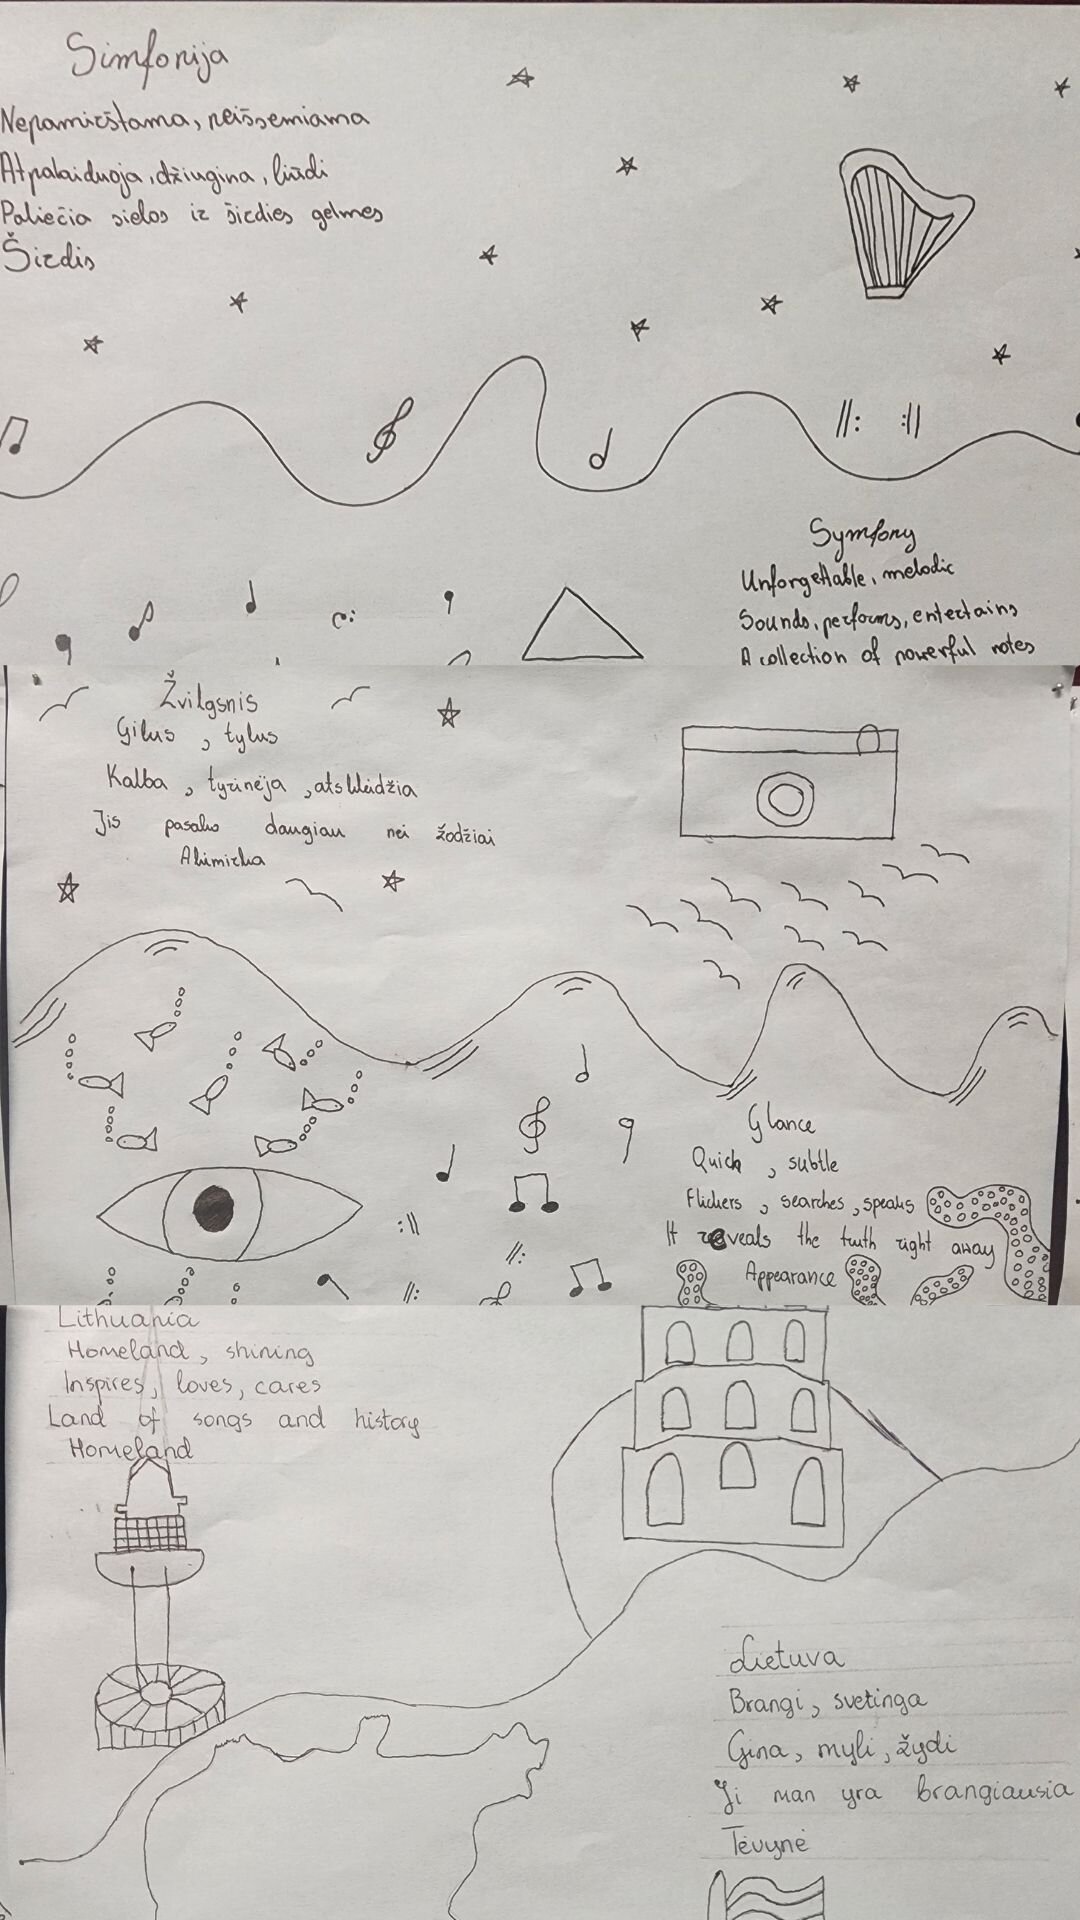 Simfonija
Nepamirštama, neišsemiama
Atpalaiduoja, džiugina, liūdi
Paliečia sielos ir širdies gelmes
Širdis
Symfony
Unforgettable, melodic
Sounds, performs, entertains
A collection of powerful notes
Žvilgsnis
Gilus, tylus
Kalba, tyrinėja, atskleidžia
Jis pasako daugiau nei žodžiai
Akimirka
Glance
Quick, subtle
Flickers, searches, speaks
It reveals the truth right away
Appearance
Lithuania
Homeland, shining
Inspires, loves, cares
Land of songs and history
Homeland
Lietuva
Brangi, svetinga
Gina, myli, žydi
Ji man yra brangiausia
Tėvynė